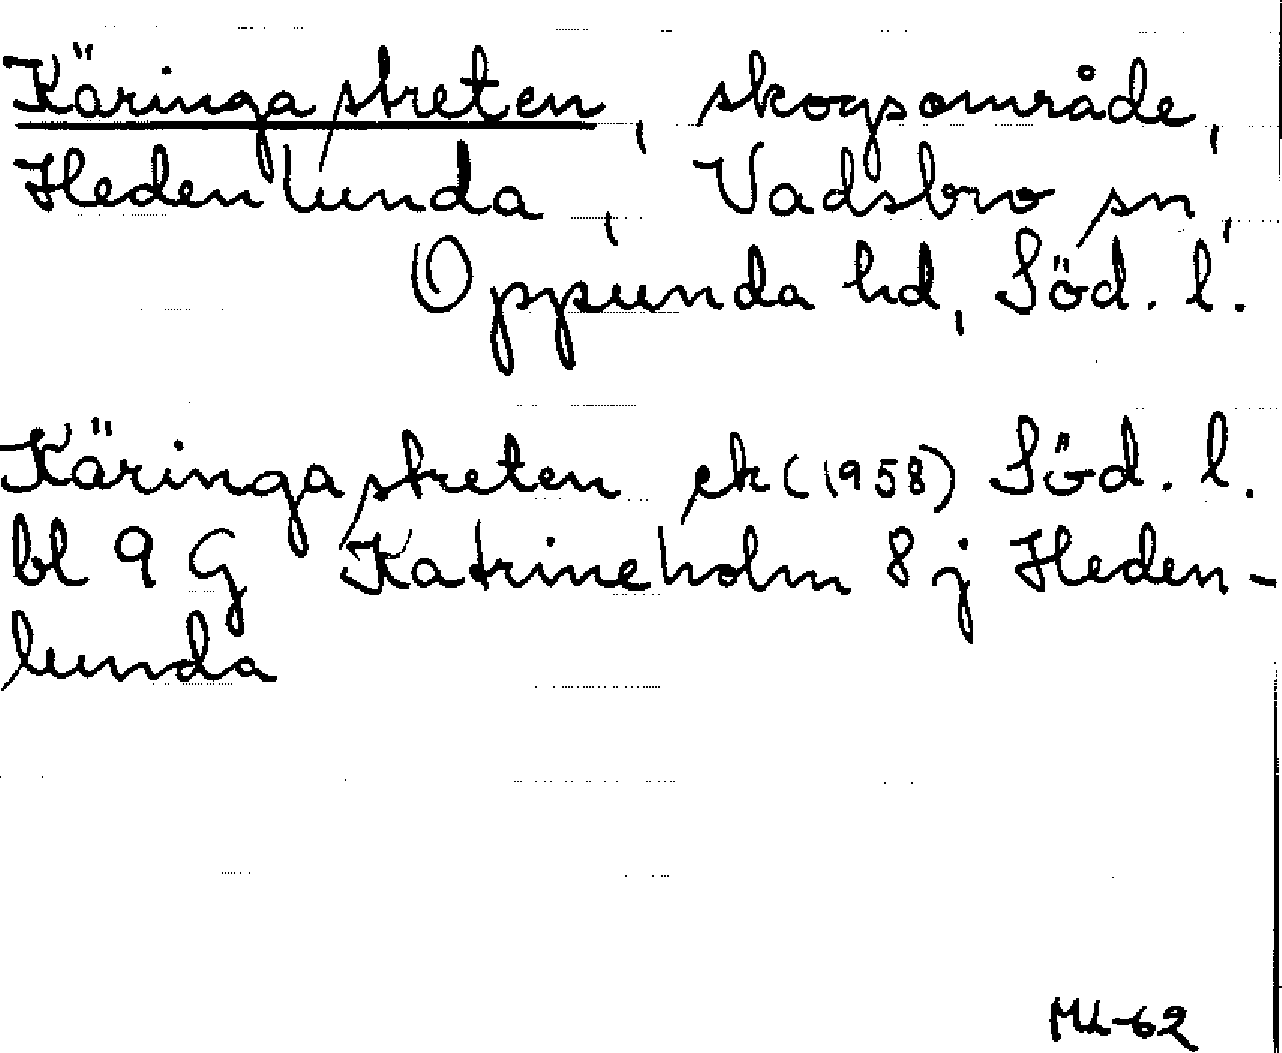 Käringastreten, skogsområde,
Hedenlunda, Vadsbro sn,
Oppunda hd, Söd. l.
Käringastreten ek (1958) Söd. l.
bl 9 G Katrineholm 8 j Heden-
lunda
ML-62